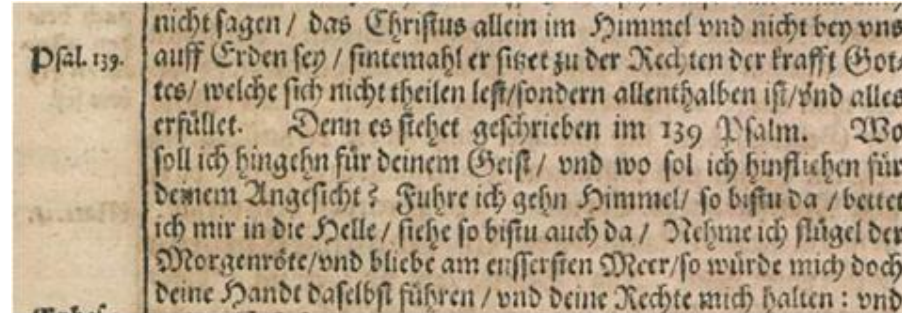 nicht sagen / das Christus allein im Himmel vnd nicht bey vns
Psal. 139.
auff Erden sey / sintemahl er sitzet zu der Rechten der krafft Got-
tes / welche sich nicht theilen lest / sondern allenthalben ist / vnd alles
erfüllet. Denn es stehet geschrieben im 139 Psalm. Wo
soll ich hingehn für deinem Geist / vnd wo sol ich hinfliehen für
deinem Angesicht? Fuhre ich gehn Himmel / so bistu da / bettet
ich mir in die Helle / siehe so bistu auch da / Nehme ich flügel der
Morgenröte / vnd bliebe am eussersten Meer / so würde mich doch
deine Handt daselbst führen / vnd deine Rechte mich halten : vnd